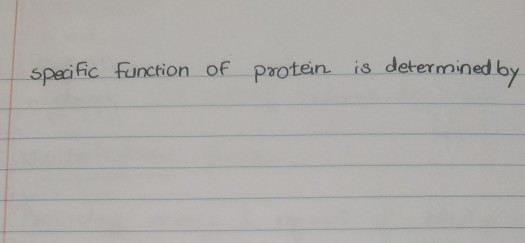 specific function of protein is determined by